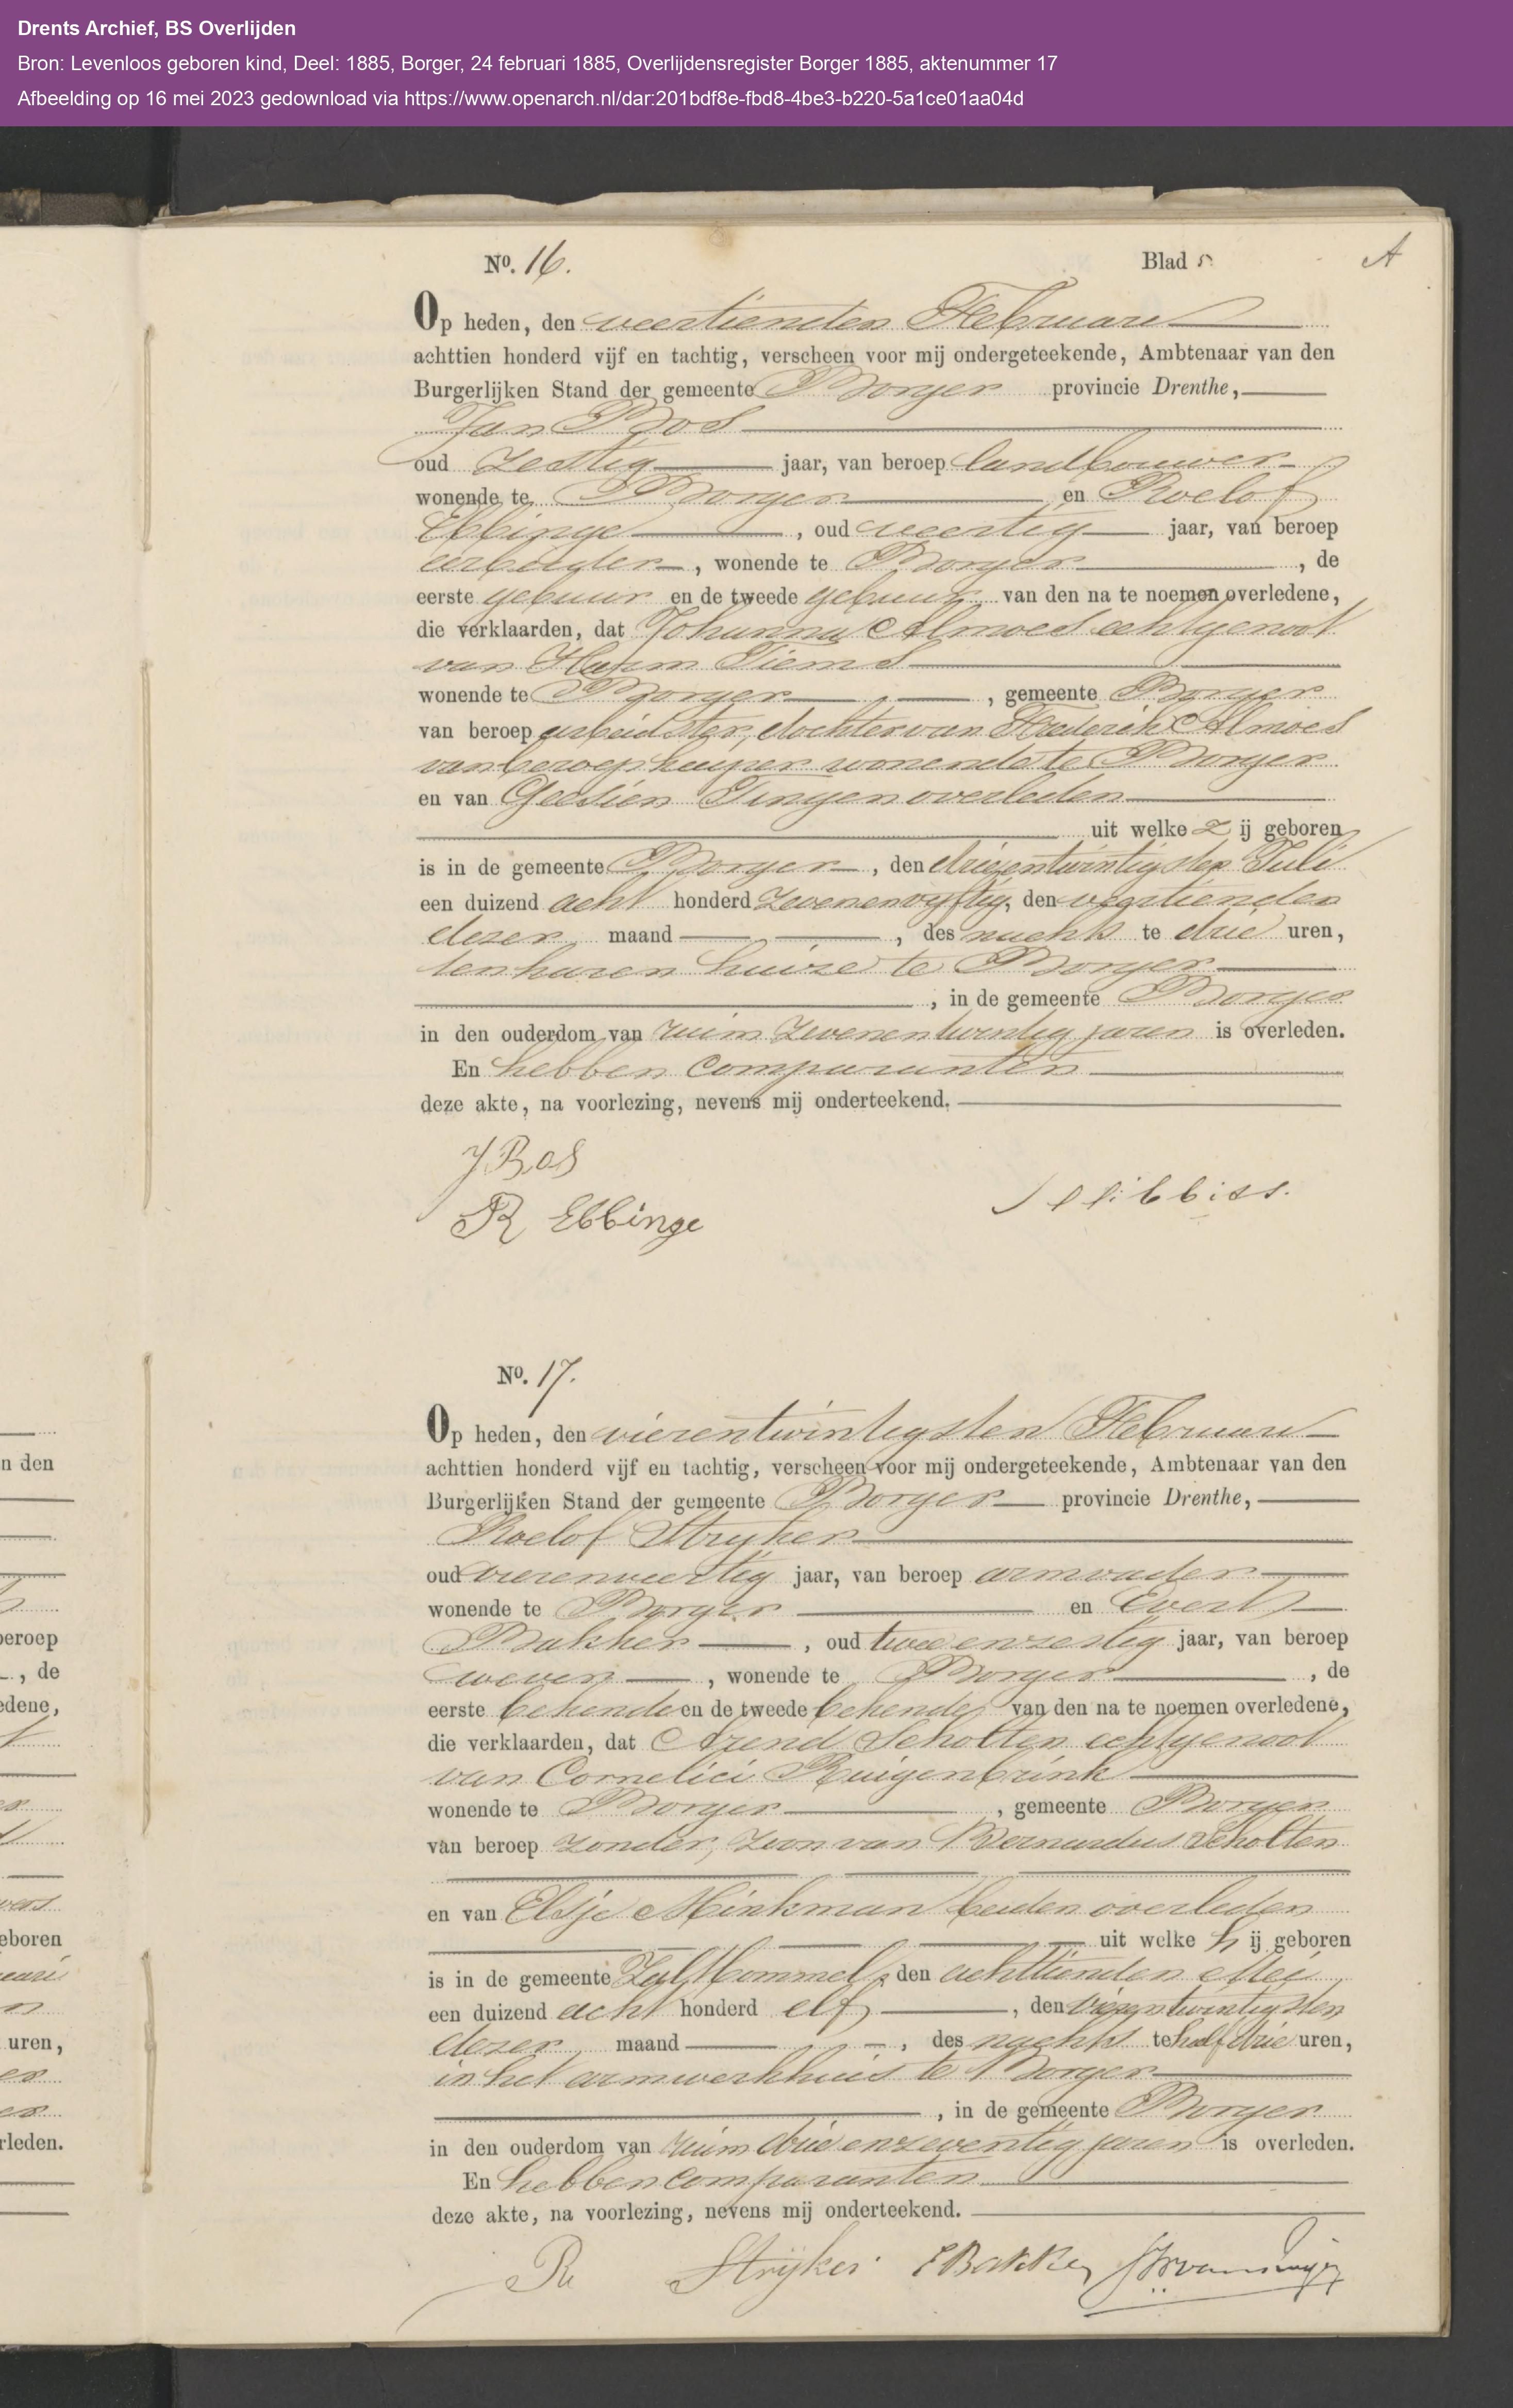 Drents Archief, BS Overlijden
Bron: Levenloos geboren kind, Deel: 1885, Borger, 24 februari 1885, Overlijdensregister Borger 1885, aktenummer 17
Afbeelding op 16 mei 2023 gedownload via https://www.openarch.nl/dar:201bdf8e-fbd8-4be3-b220-5a1ce01aa04d
No. 16. Blad 5 A
Op heden, den veertienden Februari
achttien honderd vijf en tachtig, verscheen voor mij ondergeteekende, Ambtenaar van den
Burgerlijken Stand der gemeente Borger provincie Drenthe,
Jan Bos
oud zestig jaar, van beroep landbouwer
wonende te Borger en Roelof
Ebbinge, oud veertig jaar, van beroep
arbeider, wonende te Borger, de
eerste gebuur en de tweede gebuur van den na te noemen overledene,
die verklaarden, dat Johanna Almoes echtgenoot
van Harm Tiems
wonende te Borger, gemeente Borger
van beroep arbeidster, dochter van Frederik Almoes
van beroep kuiper wonende te Borger
en van Geesien Tingen overleden
uit welke zij geboren
is in de gemeente Borger, den drieentwintigsten Juli
een duizend acht honderd zevenenvijftig, den veertienden
dezer maand, des nachts te drie uren,
ten haren huize te Borger
, in de gemeente Borger
in den ouderdom van ruim zevenentwintig jaren is overleden.
En hebben comparanten
deze akte, na voorlezing, nevens mij onderteekend.
J Bos
R Ebbinge
No. 17.
Op heden, den vierentwintigsten Februari
achttien honderd vijf en tachtig, verscheen voor mij ondergeteekende, Ambtenaar van den
Burgerlijken Stand der gemeente Borger provincie Drenthe,
Roelof Strijker
oud vierenveertig jaar, van beroep armvader
wonende te Borger en Evert
Bakker, oud tweeenzestig jaar, van beroep
wever, wonende te Borger, de
eerste bekende en de tweede bekende van den na te noemen overledene,
die verklaarden, dat Arend Scholten echtgenoot
van Cornelia Ruigenbrink
wonende te Borger, gemeente Borger
van beroep zonder, zoon van Bernardus Scholten
en van Elsje Minkman beiden overleden
uit welke hij geboren
is in de gemeente Zalt Bommel, den achttienden Mei
een duizend acht honderd elf, den vierentwintigsten
dezer maand, des nachts te half drie uren,
in het armwerkhuis te Borger
, in de gemeente Borger
in den ouderdom van ruim drieenzeventig jaren is overleden.
En hebben comparanten
deze akte, na voorlezing, nevens mij onderteekend.
R Strijker E Bakker
n den
beroep
, de
edene,
eboren
uren,
rleden.